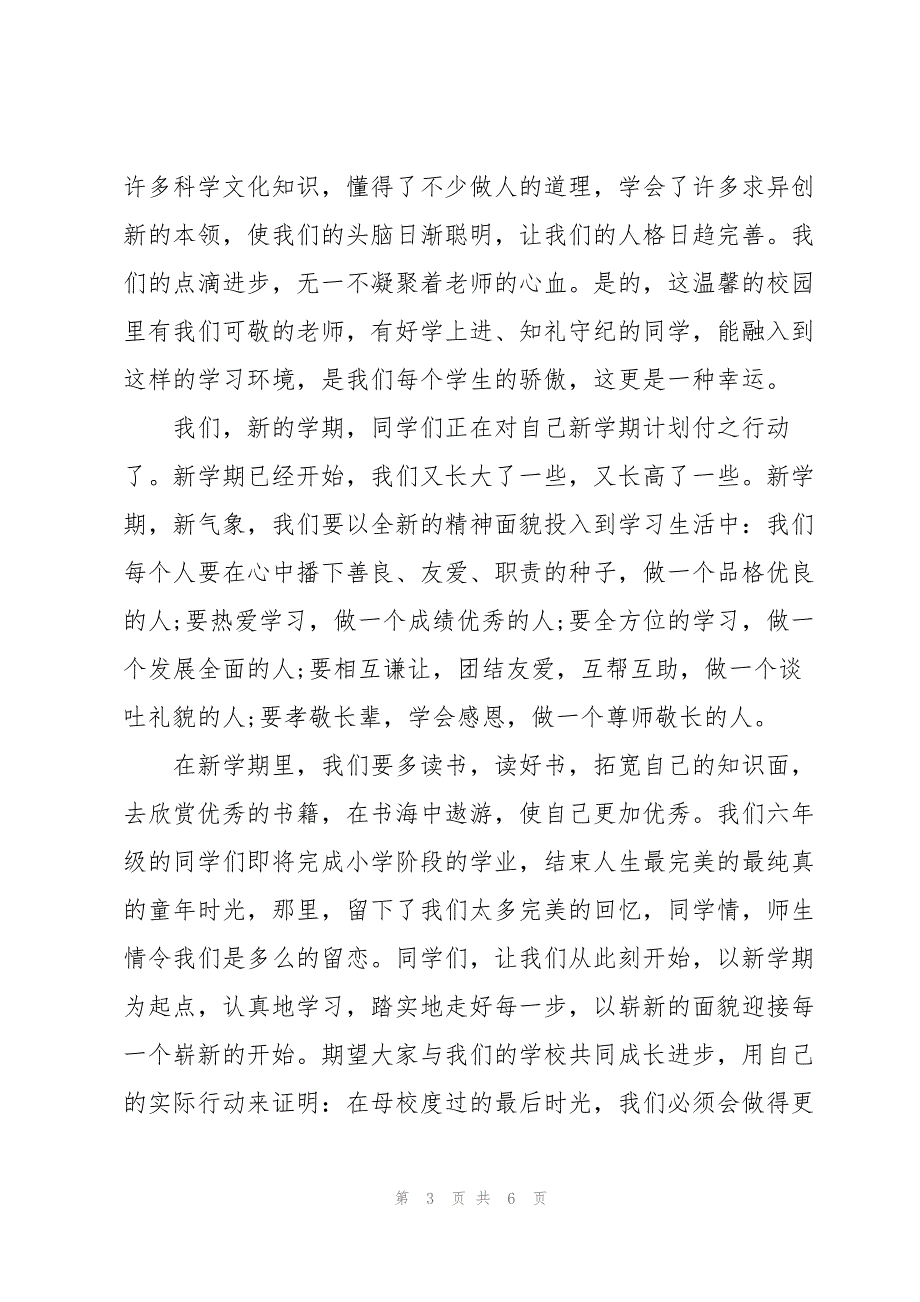 许多科学文化知识，懂得了不少做人的道理，学会了许多求异创
新的本领，使我们的头脑日渐聪明，让我们的人格日趋完善。我
们的点滴进步，无一不凝聚着老师的心血。是的，这温馨的校园
里有我们可敬的老师，有好学上进、知礼守纪的同学，能融入到
这样的学习环境，是我们每个学生的骄傲，这更是一种幸运。
我们，新的学期，同学们正在对自己新学期计划付之行动
了。新学期已经开始，我们又长大了一些，又长高了一些。新学
期，新气象，我们要以全新的精神面貌投入到学习生活中：我们
每个人要在心中播下善良、友爱、职责的种子，做一个品格优良
的人;要热爱学习，做一个成绩优秀的人;要全方位的学习，做一
个发展全面的人;要相互谦让，团结友爱，互帮互助，做一个谈
吐礼貌的人;要孝敬长辈，学会感恩，做一个尊师敬长的人。
在新学期里，我们要多读书，读好书，拓宽自己的知识面，
去欣赏优秀的书籍，在书海中遨游，使自己更加优秀。我们六年
级的同学们即将完成小学阶段的学业，结束人生最完美的最纯真
的童年时光，那里，留下了我们太多完美的回忆，同学情，师生
情令我们是多么的留恋。同学们，让我们从此刻开始，以新学期
为起点，认真地学习，踏实地走好每一步，以崭新的面貌迎接每
一个崭新的开始。期望大家与我们的学校共同成长进步，用自己
的实际行动来证明：在母校度过的最后时光，我们必须会做得更
第 3 页 共 6 页